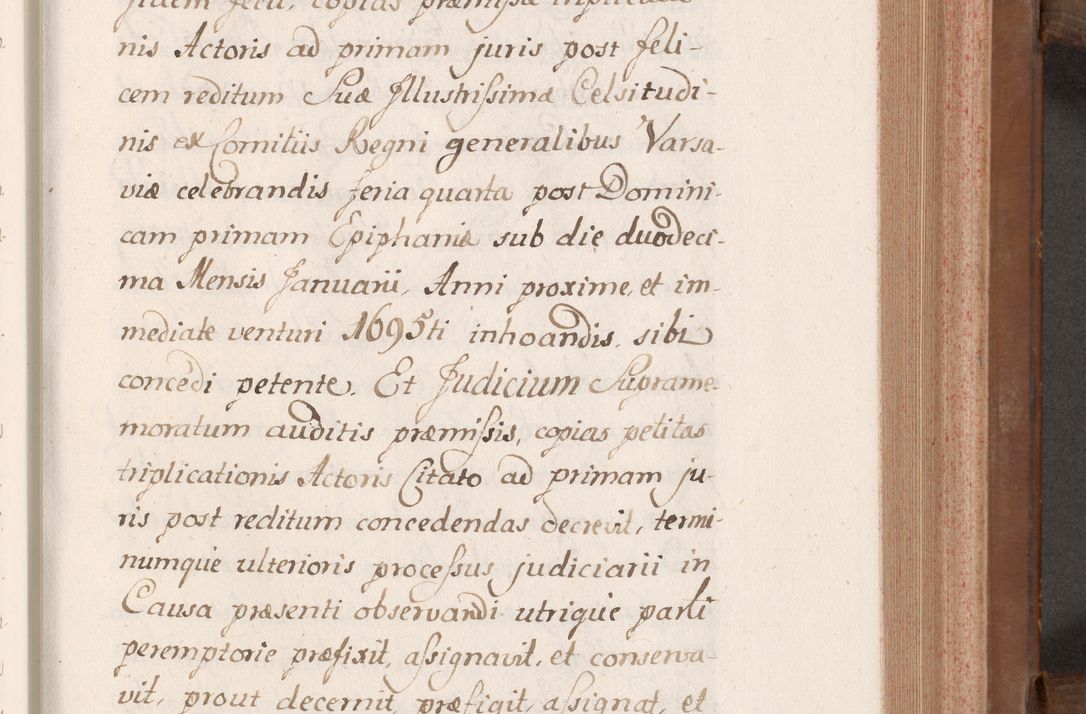 nis Actoris ad primam juris post feli-
cem reditum Suæ Illustrissimæ Celsitudi-
nis ex Comitiis Regni generalibus Varsa-
viæ celebrandis feria quarta post Domini-
cam primam Epiphaniæ sub die duodeci-
ma Mensis Januarii, Anni proxime, et im-
mediate venturi 1695ti inhoandis, sibi
concedi petente. Et Judicium Suprame-
moratum auditis præmissis, copias petitas
triplicationis Actoris Citato ad primam ju-
ris post reditum concedendas decrevit, termi-
numque ulterioris processus judiciarii in
Causa præsenti observandi utrique parti
peremptorie præfixit, assignavit, et conserva-
vit, prout decernit, præfigit, assignat, et